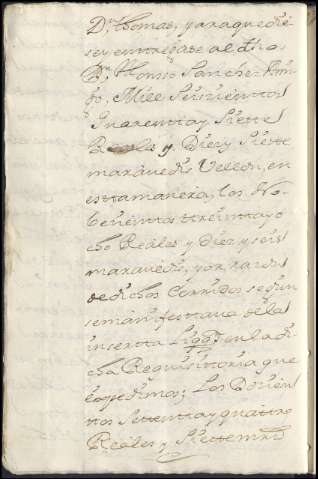 Dn. Thomas; y para que die
se y entregase al dho
Dn. Alonso Sanchez
Mill Seiscientos
quarenta y Siette
Reales y Diez y Siette
maravedis Vellon, en
esta manera, los No-
bezientos treinta y o
cho Reales y Diez y seis
maravedis, por razon
de dichos Corridos segun
se manifestava de la
inserta en la di
cha Requisittoria que
expedimos; Los Docien
tos Settenta y quattro
Reales y Siette mrs